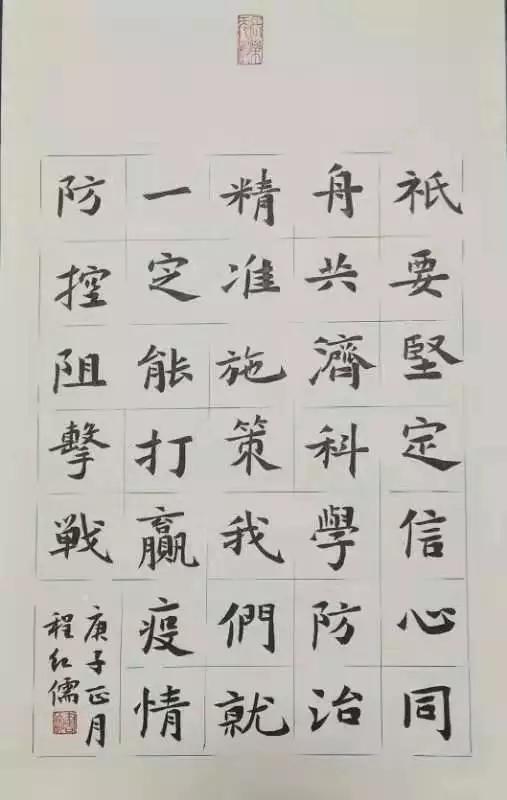 祇要堅定信心同
舟共濟科學防治
精准施策我們就
一定能打贏疫情
防控阻擊戰
庚子正月
程紅儒